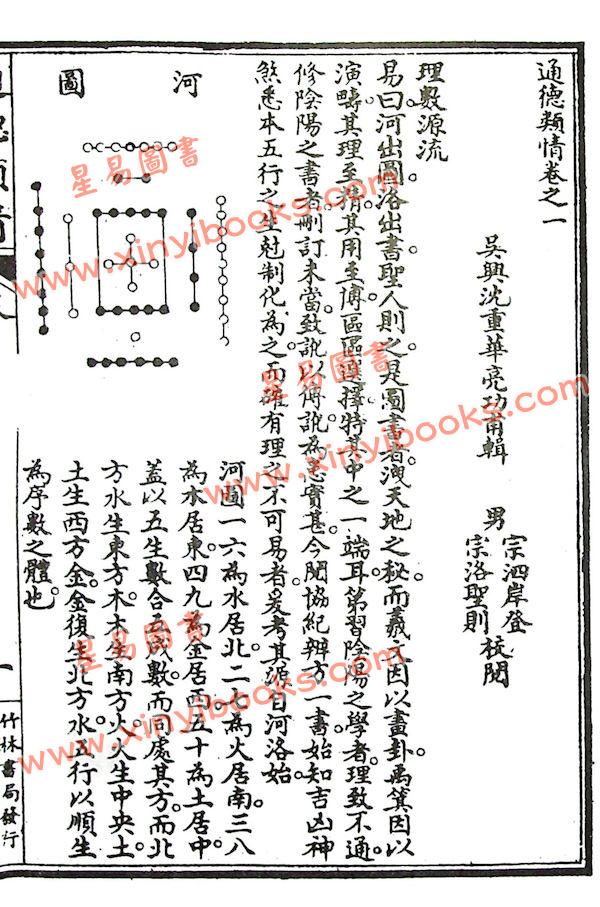 通德類情卷之一
吳興沈重華亮功甫輯
男
宗泗岸登
宗洛聖則
校閱
理數源流
易曰河出圖洛出書聖人則之是圖書者洩天地之秘而羲文因以畫卦禹箕因以
演疇其理至精其用至博區區選擇特其中之一端耳第習陰陽之學者理致不通
修陰陽之書者刪訂未當致訛以傳訛為害實甚今閱協紀辨方一書始知吉凶神
煞悉本五行之生尅制化為之而確有理之不可易者爰考其源自河洛始
河圖
河圖一六為水居北二七為火居南三八
為木居東四九為金居西五十為土居中
蓋以五生數合五成數而同處其方而北
方水生東方木木生南方火火生中央土
土生西方金金復生北方水五行以順生
為序數之體也
一
竹林書局發行
星易圖書
www.xinyibooks.com
星易圖書
www.xinyibooks.com
星易圖書
www.xinyibooks.com